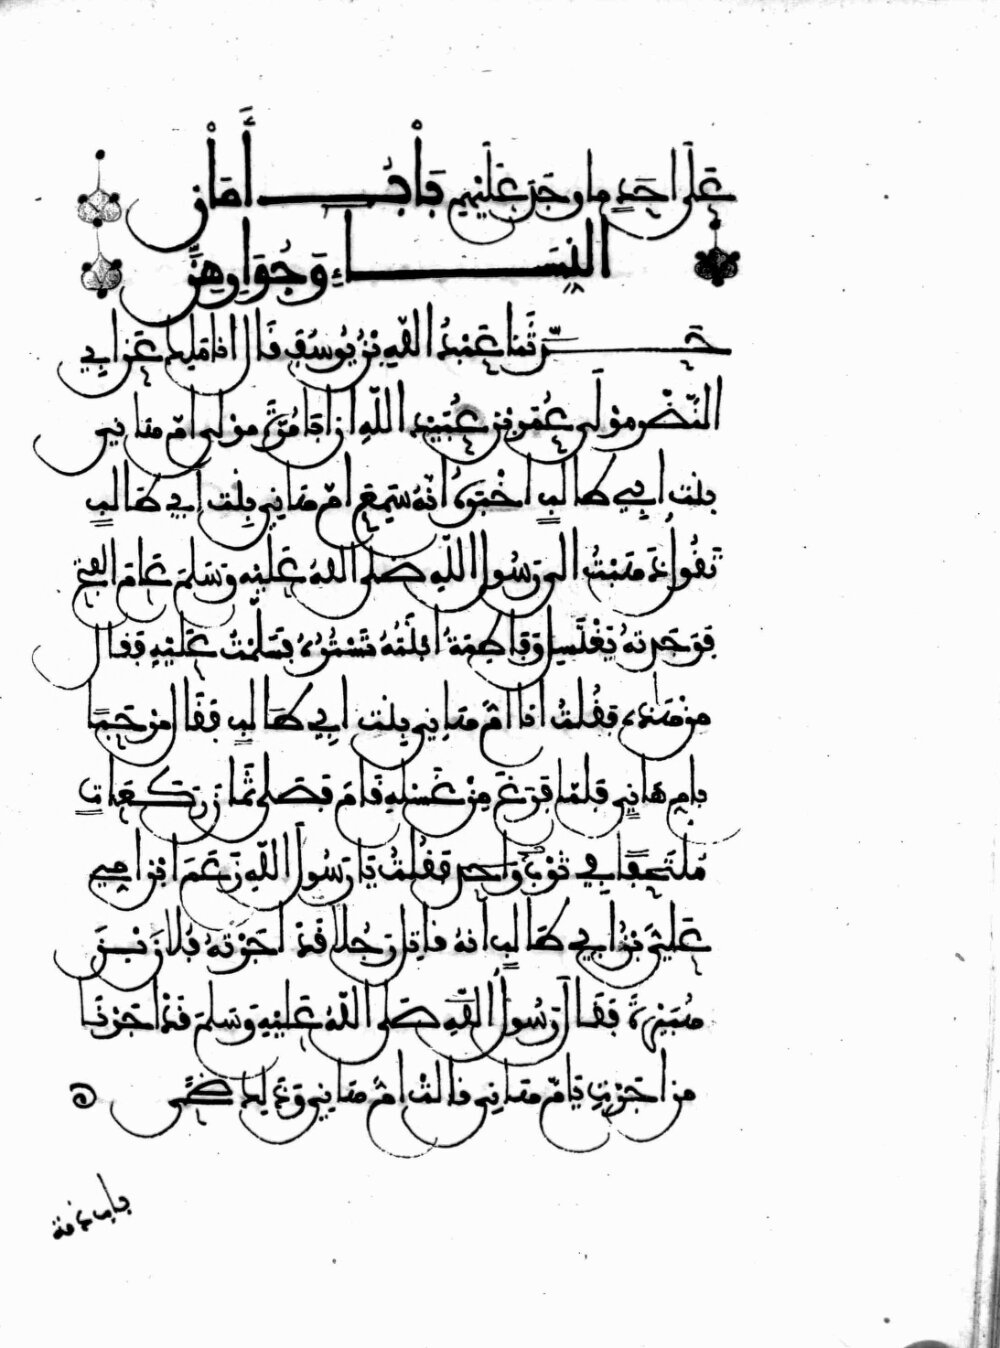 عَلَى أَحَدٍ مَا وَجَدَ عَلَيْهِمْ بَابُ أَمَانِ
النِّسَاءِ وَجُوَارِهِنَّ
حَدَّثَنَا عَبْدُ اللَّهِ بْنُ يُوسُفَ قَالَ انا مَلِكٌ عَنْ أَبِي
النَّضْرِ مَوْلَى عُمَرَ بْنِ عُبَيْدِ اللَّهِ أَنَّ أَبَا مُرَّةَ مَوْلَى أُمِّ هَانِي
بِنْتِ أَبِي طَالِبٍ أَخْبَرَهُ أَنَّهُ سَمِعَ أُمَّ هَانِي بِنْتَ أَبِي طَالِبٍ
تَقُولُ ذَهَبْتُ إِلَى رَسُولِ اللَّهِ صَلَّى اللَّهُ عَلَيْهِ وَسَلَّمَ عَامَ الْفَتْحِ
فَوَجَدْتُهُ يَغْتَسِلُ وَفَاطِمَةُ ابْنَتُهُ تَسْتُرُهُ فَسَلَّمْتُ عَلَيْهِ فَقَالَ
مَنْ هَذِهِ فَقُلْتُ أَنَا أُمُّ هَانِي بِنْتُ أَبِي طَالِبٍ فَقَالَ مَرْحَبًا
بِأُمِّ هَانِي فَلَمَّا فَرَغَ مِنْ غَسْلِهِ قَامَ فَصَلَّى ثَمَانِ رَكَعَاتٍ
مُلْتَحِفًا فِي ثَوْبٍ وَاحِدٍ فَقُلْتُ يَا رَسُولَ اللَّهِ زَعَمَ ابْنُ أُمِّي
عَلِيُّ بْنُ أَبِي طَالِبٍ أَنَّهُ قَاتِلٌ رَجُلًا قَدْ أَجَرْتُهُ فُلَانَ بْنَ
هُبَيْرَةَ فَقَالَ رَسُولُ اللَّهِ صَلَّى اللَّهُ عَلَيْهِ وَسَلَّمَ قَدْ أَجَرْنَا
مَنْ أَجَرْتِ يَا أُمَّ هَانِي قَالَتْ أُمُّ هَانِي وَذَلِكَ ضُحًى